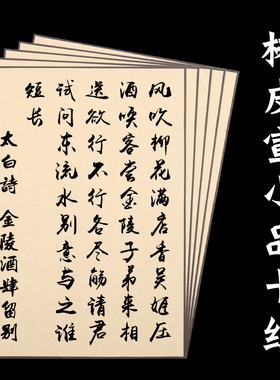 皮宣小品十
风吹柳花满店香吴姬压
酒唤客尝金陵子弟来相
送欲行不行各尽觞请君
试问东流水别意与之谁
短长
太白詩 金陵酒肆留别